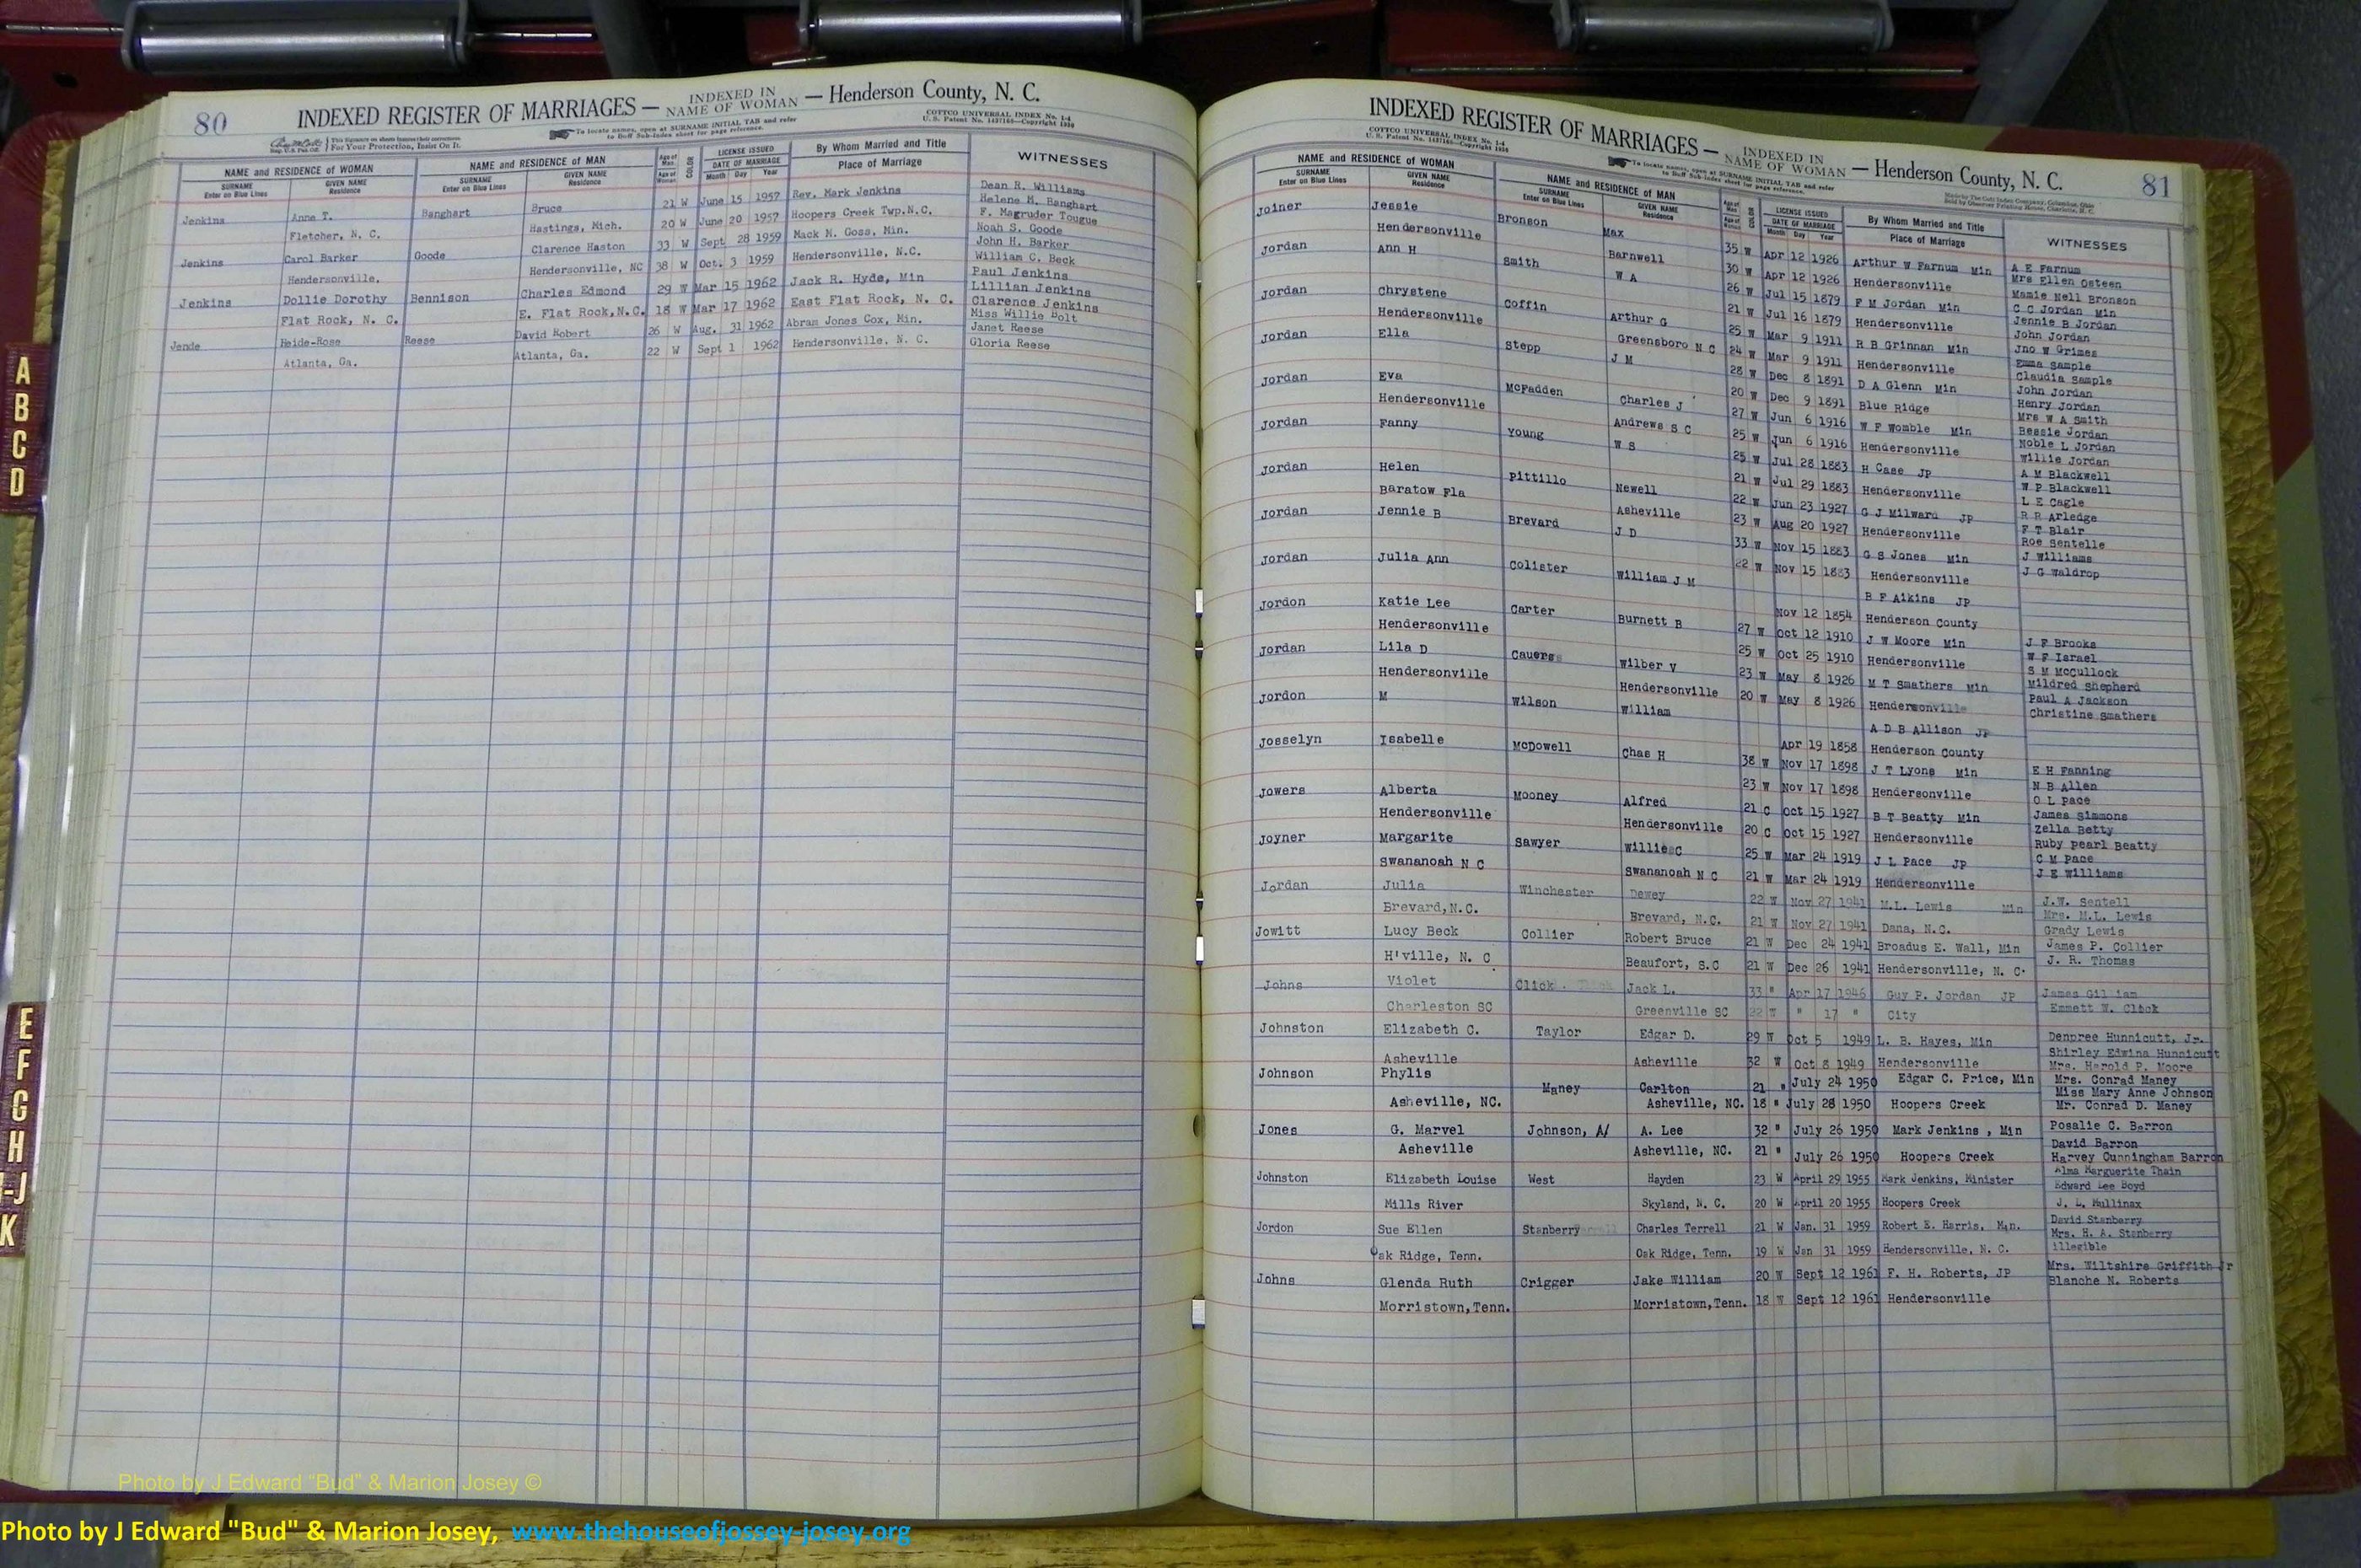 80
INDEXED REGISTER OF MARRIAGES — INDEXED IN NAME OF WOMAN — Henderson County, N. C.
This Signature on sheets features their correctness
For Your Protection, Insist On It.
To locate names, open at SURNAME INITIAL TAB and refer
to Buff Sub-Index sheet for page reference.
COTTCO UNIVERSAL INDEX No. 1-4
NAME and RESIDENCE OF WOMAN NAME and RESIDENCE OF MAN Age of Man Age of Woman COLOR LICENSE ISSUED DATE OF MARRIAGE By Whom Married and Title Place of Marriage WITNESSES
SURNAME Enter on Blue Lines GIVEN NAME Residence SURNAME Enter on Blue Lines GIVEN NAME Residence Month Day Year
Jenkins Anne T. Banghart Bruce 21 W June 15 1957 Rev. Mark Jenkins Dean R. Williams
Helene M. Banghart
Fletcher, N. C. Hastings, Mich. 20 W June 20 1957 Hoopers Creek Twp.N.C. F. Magruder Tougue
Jenkins Carol Barker Goode Clarence Haston 33 W Sept 28 1959 Mack M. Goss, Min. Noah S. Goode
John H. Barker
Hendersonville, Hendersonville, NC 38 W Oct. 3 1959 Hendersonville, N.C. William C. Beck
Jenkins Dollie Dorothy Bennison Charles Edmond 29 W Mar 15 1962 Jack R. Hyde, Min Paul Jenkins
Lillian Jenkins
Flat Rock, N. C. E. Flat Rock,N.C. 18 W Mar 17 1962 East Flat Rock, N. C. Clarence Jenkins
Jende Heide-Rose Reese David Robert 26 W Aug. 31 1962 Abram Jones Cox, Min. Miss Willie Bolt
Janet Reese
Atlanta, Ga. Atlanta, Ga. 22 W Sept 1 1962 Hendersonville, N. C. Gloria Reese
A
B
C
D
E
F
G
H
I-J
K
INDEXED REGISTER OF MARRIAGES — INDEXED IN NAME OF WOMAN — Henderson County, N. C.
81
COTTCO UNIVERSAL INDEX No. 1-4
To locate names, open at SURNAME INITIAL TAB and refer
to Buff Sub-Index sheet for page reference.
NAME and RESIDENCE OF WOMAN NAME and RESIDENCE OF MAN LICENSE ISSUED DATE OF MARRIAGE By Whom Married and Title Place of Marriage WITNESSES
SURNAME Enter on Blue Lines GIVEN NAME Residence SURNAME Enter on Blue Lines GIVEN NAME Residence Month Day Year
Joiner Jessie Bronson Max 35 W Apr 12 1926 Arthur W Farnum Min A E Farnum
Mrs Ellen Osteen
Hendersonville Barnwell 30 W Apr 12 1926 Hendersonville Mamie Nell Bronson
Jordan Ann H Smith W A 26 W Jul 15 1879 F M Jordan Min C C Jordan Min
Jennie B Jordan
21 W Jul 16 1879 Hendersonville John Jordan
Jordan Chrystene Coffin Arthur G 25 W Mar 9 1911 R B Grinnan Min Jno W Grimes
Emma Sample
Hendersonville Greensboro N C 24 W Mar 9 1911 Hendersonville Claudia Sample
Jordan Ella Stepp J M 28 W Dec 8 1891 D A Glenn Min John Jordan
Henry Jordan
20 W Dec 9 1891 Blue Ridge
Jordan Eva McFadden Charles J 27 W Jun 6 1916 W F Womble Min Mrs W A Smith
Bessie Jordan
Hendersonville Andrews S C 25 W Jun 6 1916 Hendersonville Noble L Jordan
Jordan Fanny Young W S 25 W Jul 28 1883 H Case JP Willie Jordan
A M Blackwell
21 W Jul 29 1883 Hendersonville W P Blackwell
Jordan Helen Pittillo Newell 22 W Jun 23 1927 G J Milward JP L E Cagle
R R Arledge
Baratow Fla Asheville 23 W Aug 20 1927 Hendersonville F T Blair
Jordan Jennie B Brevard J D 33 W Nov 15 1883 G S Jones Min Roe Sentelle
J Williams
22 W Nov 15 1883 Hendersonville J G Waldrop
Jordan Julia Ann Colister William J M B F Aikins JP
Nov 12 1854 Henderson County
Jordon Katie Lee Carter Burnett B 27 W Oct 12 1910 J W Moore Min J F Brooks
W F Israel
Hendersonville 25 W Oct 25 1910 Hendersonville S M McCullock
Jordan Lila D Cauers Wilber V 23 W May 8 1926 M T Smathers Min Mildred Shepherd
Paul A Jackson
Hendersonville Hendersonville 20 W May 8 1926 Hendersonville Christine Smathers
Jordon M Wilson William A D B Allison JP
Apr 19 1858 Henderson County
Josselyn Isabelle McDowell Chas H 38 W Nov 17 1898 J T Lyons Min E H Fanning
N B Allen
23 W Nov 17 1898 Hendersonville O L Pace
Jowers Alberta Mooney Alfred 21 C Oct 15 1927 B T Beatty Min James Simmons
Zella Betty
Hendersonville Hendersonville 20 C Oct 15 1927 Hendersonville Ruby Pearl Beatty
Joyner Margarite Sawyer Willie C 25 W Mar 24 1919 J L Pace JP C M Pace
J E Williams
Swananoah N C Swananoah N C 21 W Mar 24 1919 Hendersonville
Jordan Julia Winchester Dewey 22 W Nov 27 1941 M.L. Lewis Min J.W. Sentell
Mrs. M.L. Lewis
Brevard,N.C. Brevard, N.C. 21 W Nov 27 1941 Dana, N.C. Grady Lewis
Jowitt Lucy Beck Collier Robert Bruce 21 W Dec 24 1941 Broadus E. Wall, Min James P. Collier
J. R. Thomas
H'ville, N. C Beaufort, S.C 21 W Dec 26 1941 Hendersonville, N. C.
Johns Violet Click Jack L. 33 " Apr 17 1946 Guy P. Jordan JP James Gil iam
Emmett W. Clock
Charleston SC Greenville SC 22 W " 17 " City
Johnston Elizabeth C. Taylor Edgar D. 29 W Oct 5 1949 L. B. Hayes, Min Denpree Hunnicutt, Jr.
Shirley Edwina Hunnicutt
Asheville Asheville 32 W Oct 8 1949 Hendersonville Mrs. Harold P. Moore
Johnson Phylis Maney Carlton 21 " July 24 1950 Edgar C. Price, Min Mrs. Conrad Maney
Miss Mary Anne Johnson
Asheville, NC. Asheville, NC. 18 " July 28 1950 Hoopers Creek Mr. Conrad D. Maney
Jones G. Marvel Johnson, A/ A. Lee 32 " July 26 1950 Mark Jenkins , Min Posalie C. Barron
David Barron
Asheville Asheville, NC. 21 " July 26 1950 Hoopers Creek Harvey Cunningham Barron
Johnston Elizabeth Louise West Hayden 23 W April 29 1955 Mark Jenkins, Minister Alma Marguerite Thain
Edward Lee Boyd
Mills River Skyland, N. C. 20 W April 20 1955 Hoopers Creek J. L. Mullinax
Jordon Sue Ellen Stanberry Charles Terrell 21 W Jan. 31 1959 Robert E. Harris, Min. David Stanberry
Mrs. H. A. Stanberry
Oak Ridge, Tenn. Oak Ridge, Tenn. 19 W Jan 31 1959 Hendersonville, N. C. illegible
Johns Glenda Ruth Crigger Jake William 20 W Sept 12 1961 F. H. Roberts, JP Mrs. Wiltshire Griffith Jr
Blanche N. Roberts
Morristown,Tenn. Morristown,Tenn. 18 W Sept 12 1961 Hendersonville
Photo by J Edward "Bud" & Marion Josey ©
Photo by J Edward "Bud" & Marion Josey, www.thehouseofjossey-josey.org